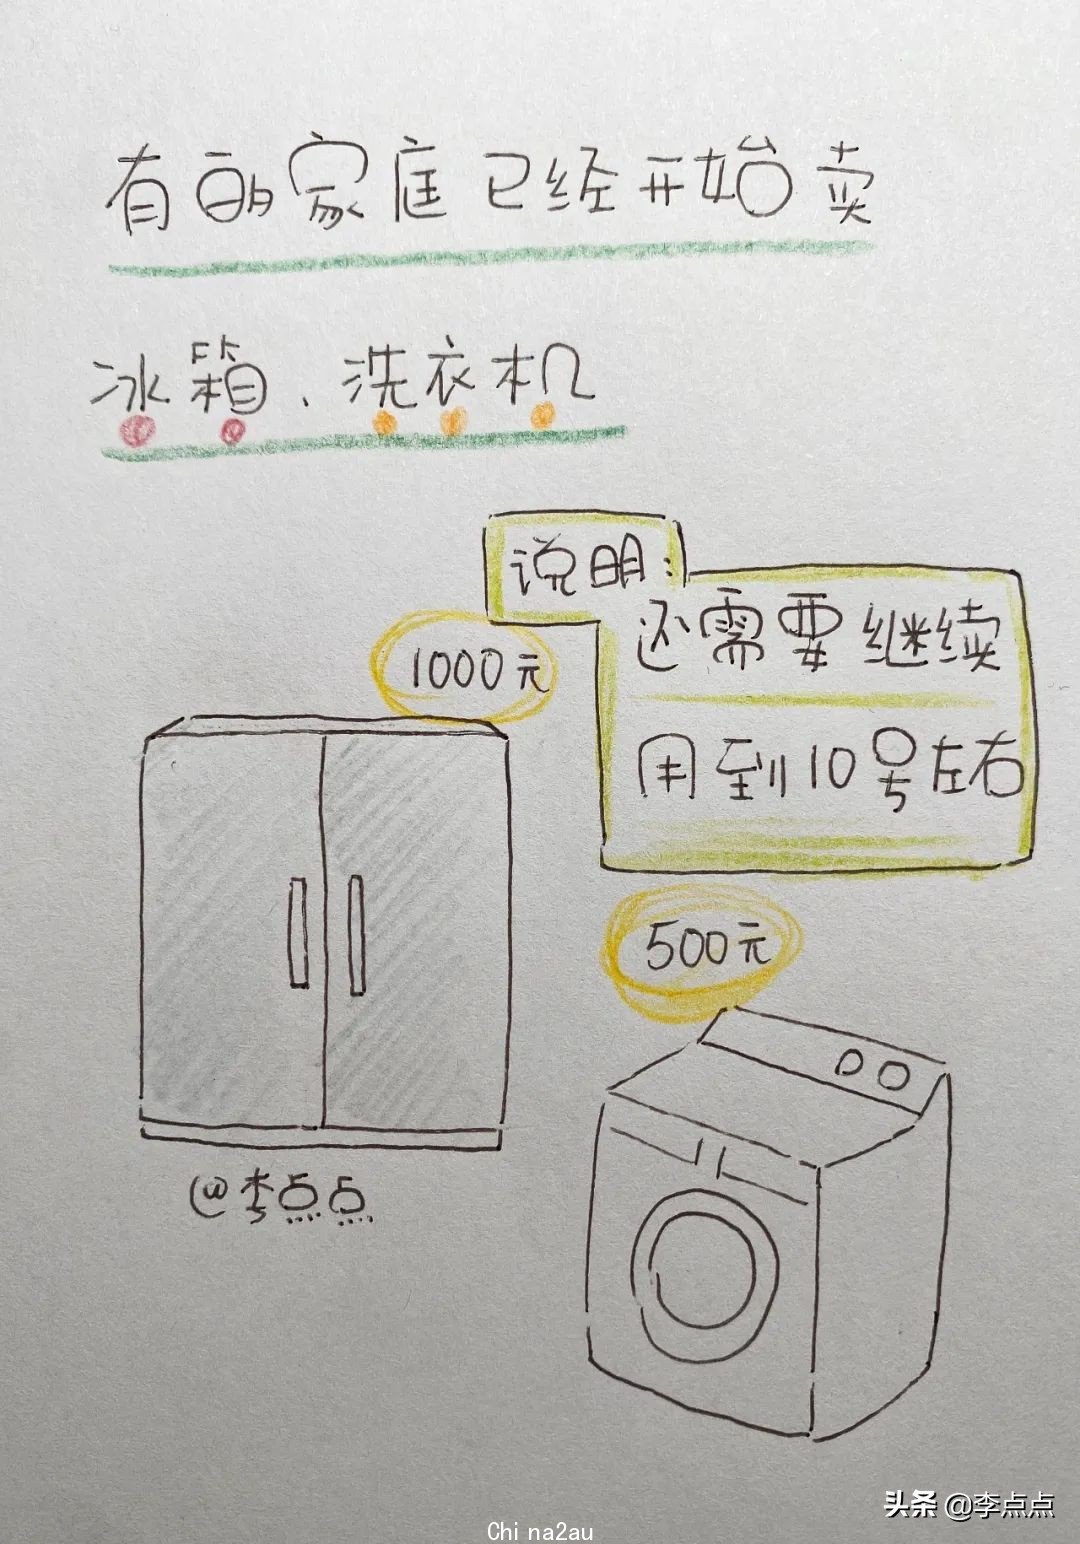 有的家庭已经开始卖
冰箱、洗衣机
说明:
还需要继续
用到10号左右
1000元
500元
@李点点
头条 @李点点
China2au